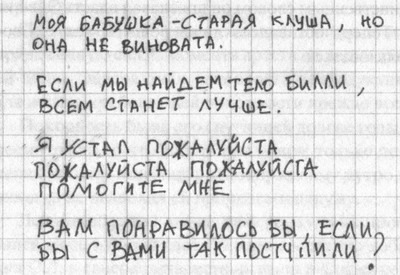 МОЯ БАБУШКА - СТАРАЯ КЛУША, НО
ОНА НЕ ВИНОВАТА.
ЕСЛИ МЫ НАЙДЕМ ТЕЛО БИЛЛИ,
ВСЕМ СТАНЕТ ЛУЧШЕ.
Я УСТАЛ ПОЖАЛУЙСТА
ПОЖАЛУЙСТА ПОЖАЛУЙСТА
ПОМОГИТЕ МНЕ
ВАМ ПОНРАВИЛОСЬ БЫ, ЕСЛИ
БЫ С ВАМИ ТАК ПОСТУПИЛИ?